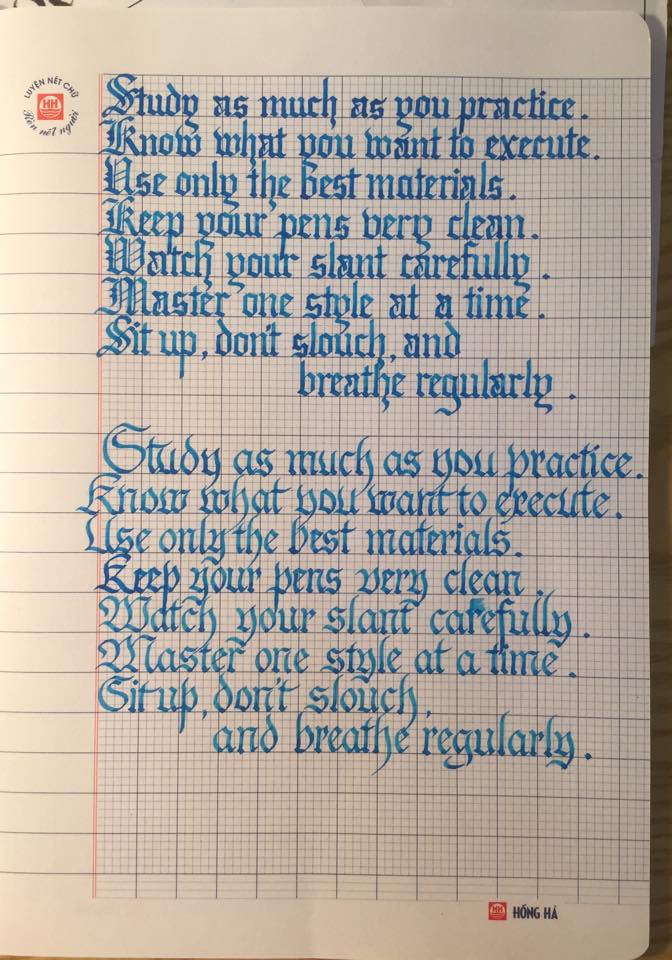 LUYỆN NÉT CHỮ
HH
Rèn nết người
Study as much as you practice.
Know what you want to execute.
Use only the best materials.
Keep your pens very clean.
Watch your slant carefully.
Master one style at a time.
Sit up, don't slouch, and
breathe regularly.
Study as much as you practice.
Know what you want to execute.
Use only the best materials.
Keep your pens very clean.
Watch your slant carefully.
Master one style at a time.
Sit up, don't slouch,
and breathe regularly.
HH HỒNG HÀ